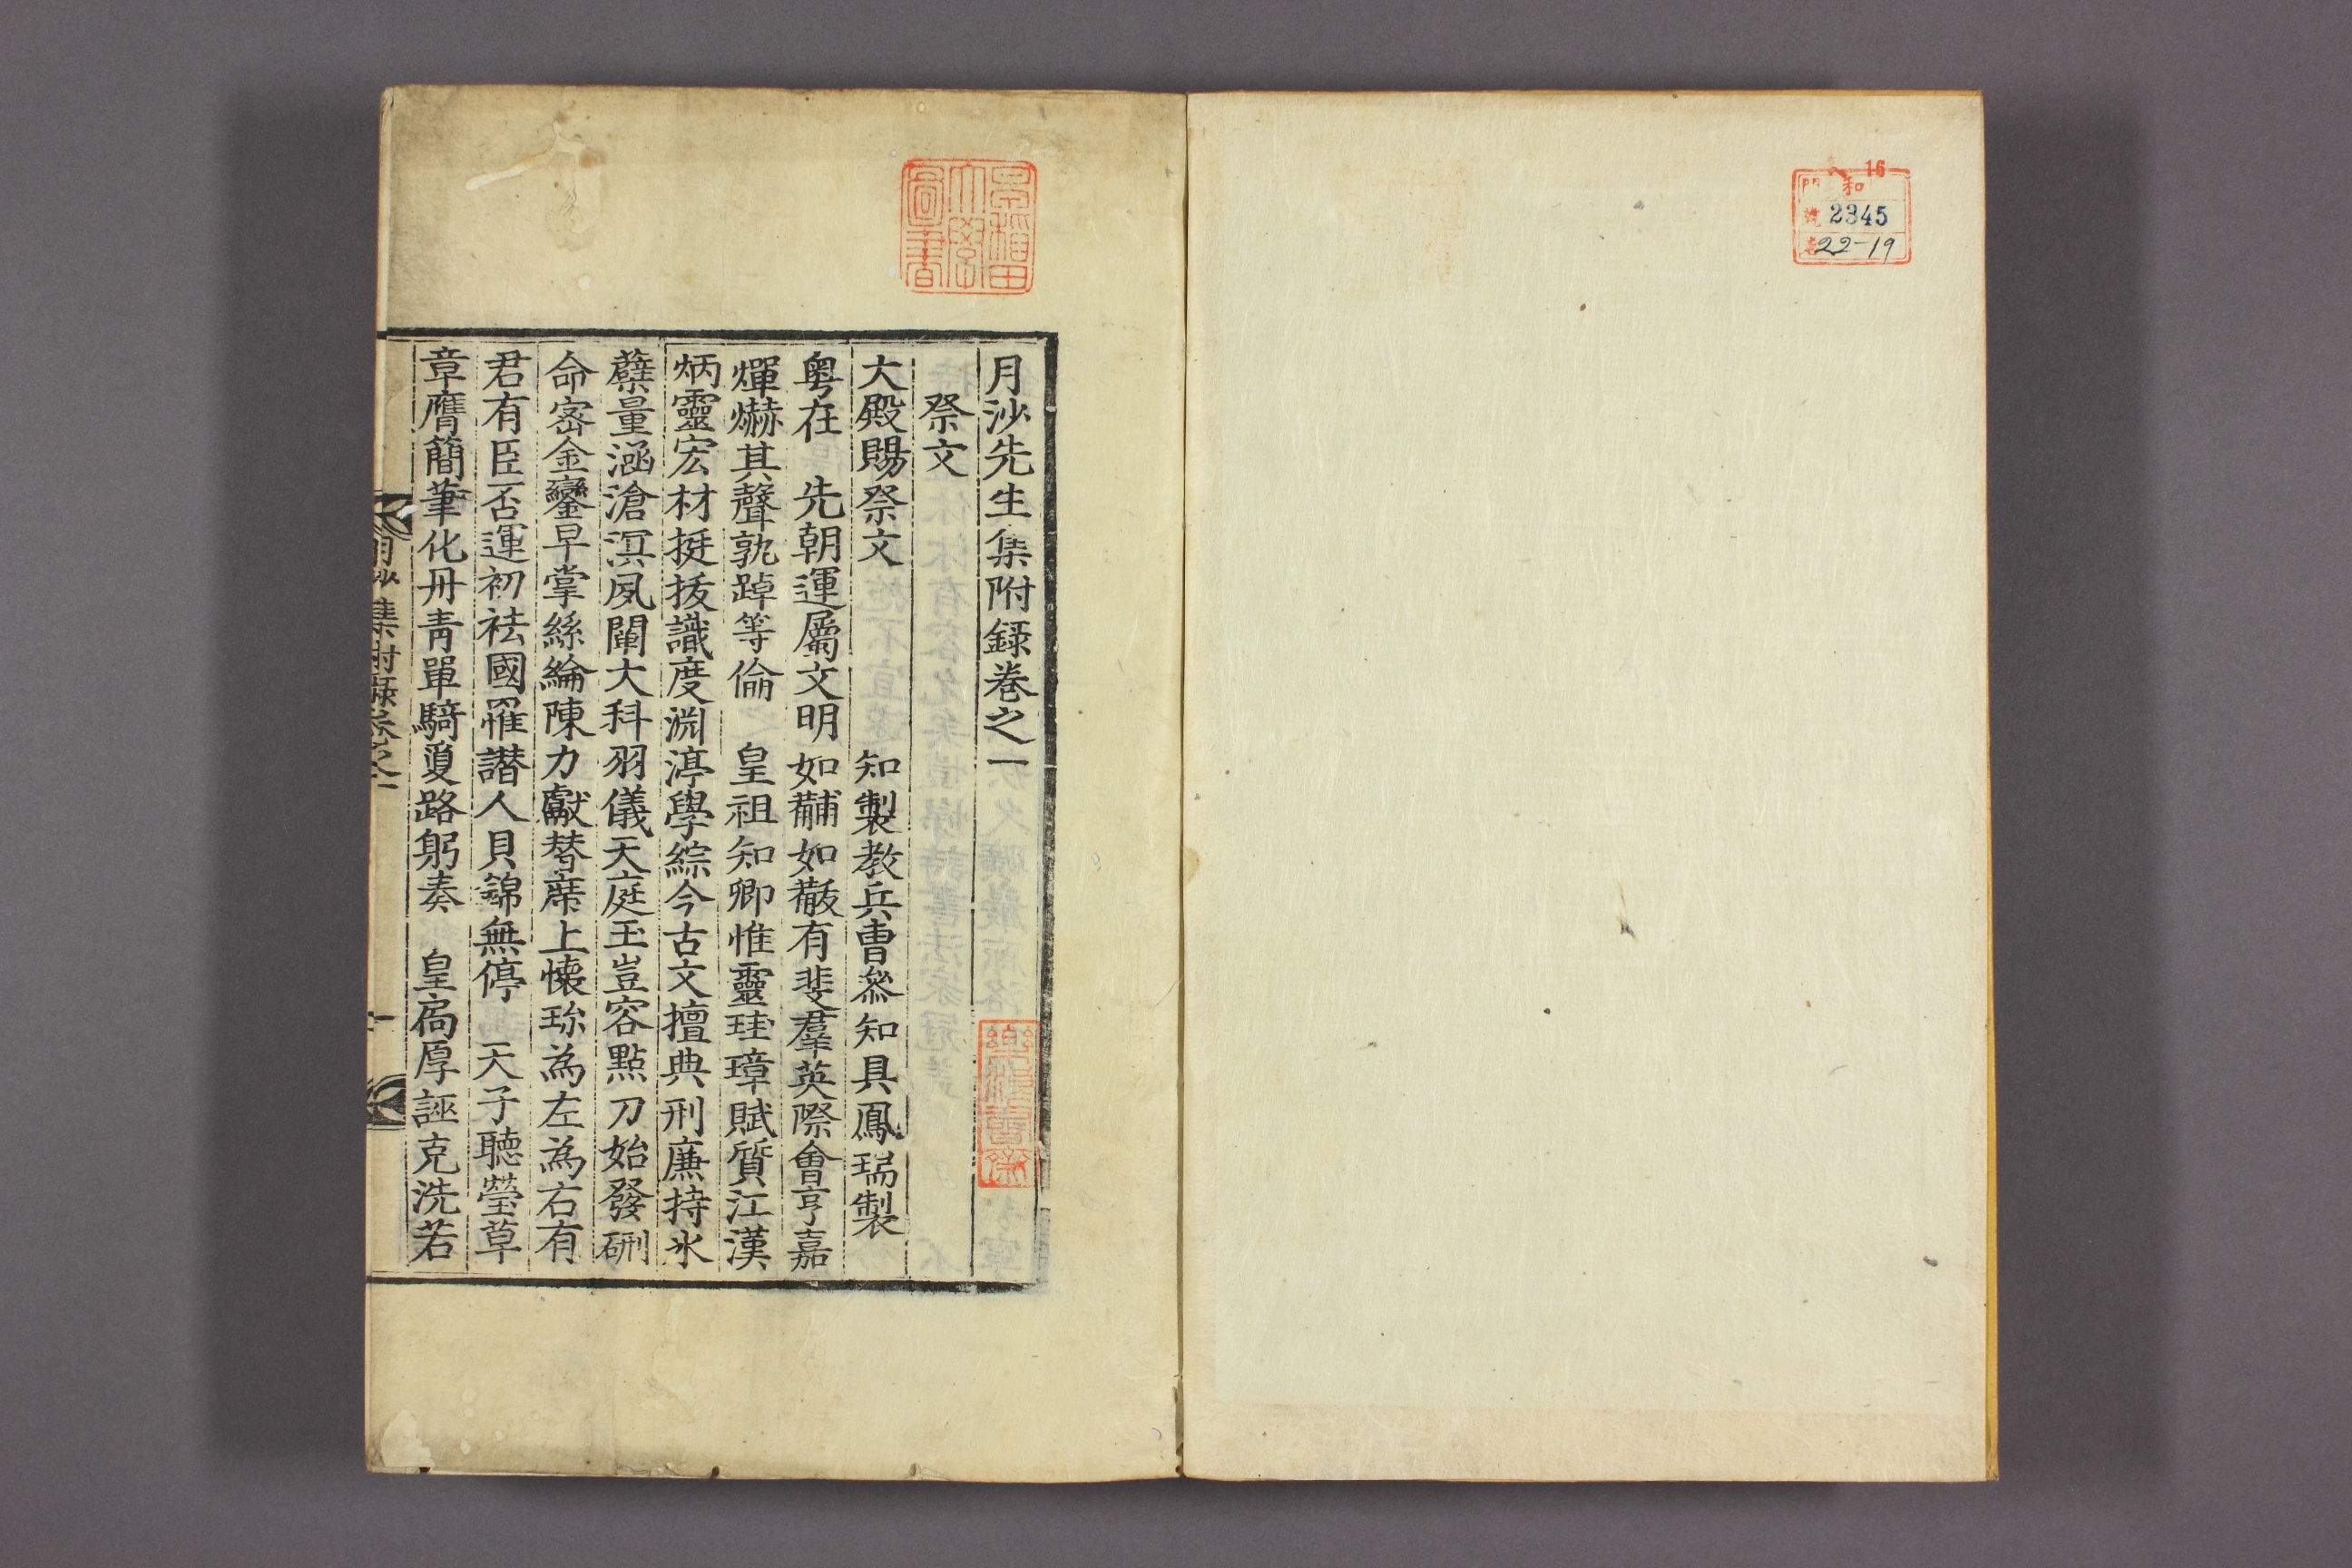 16
和
2345
22-19
早稲田
大學
圖書
月沙先生集附録巻之一
祭文
大殿賜祭文 知製教兵曹叅知具鳳瑞製
粤在 先朝運屬文明如黼如黻有斐羣英際會亨嘉
燀爀其聲孰踔等倫 皇祖知卿惟靈珪璋賦質江漢
炳靈宏材挺拔識度淵渟學綜今古文擅典刑廉持氷
蘗量涵滄溟夙闡大科羽儀天庭玉豈容點刀始發硎
命宻金鑾早掌絲綸陳力獻替席上懷珎為左為右有
君有臣否運初祛國罹譖人貝錦無停 天子聽瑩草
章膺簡筆化丹青單騎夐路躬奏 皇扃厚誣克洗若
月沙集附録卷之一
一